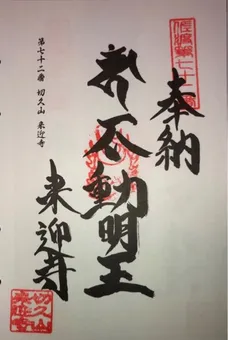 七十二
奉納
不動明王
第七十二番 切久山 来迎寺
来迎寺
切久山
来迎寺